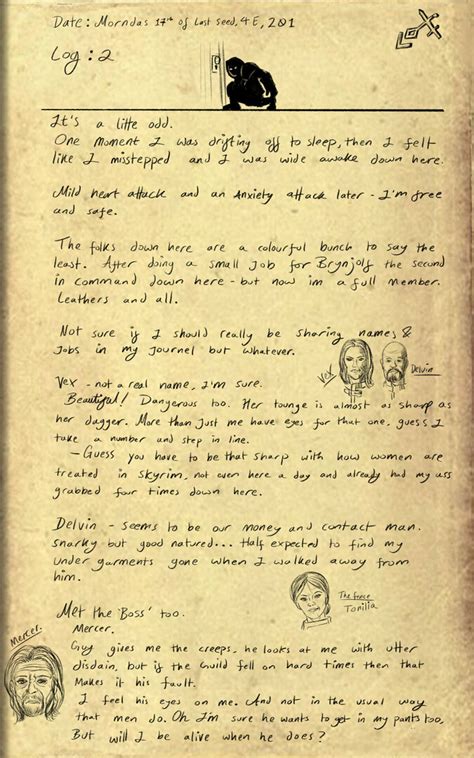 Date: Morndas 17th of Last Seed, 4E, 201
Log: 2
It's a litte odd.
One moment I was drifting off to sleep, then I felt
like I misstepped and I was wide awake down here.
Mild heart attack and an Anxiety attack later - I'm free
and safe.
The folks down here are a colourful bunch to say the
least. After doing a small job for Brynjolf the second
in command down here - but now im a full member.
Leathers and all.
Not sure if I should really be sharing names &
Jobs in my Journel but whatever.
Vex
Delvin
Vex - not a real name, I'm sure.
Beautiful! Dangerous too. Her tounge is almost as sharp as
her dagger. More than just me have eyes for that one, guess I
take a number and step in line.
- Guess you have to be that sharp with how women are
treated in Skyrim, not even here a day and already had my ass
grabbed four times down here.
Delvin - seems to be our money and contact man.
Snarky but good natured... Half expected to find my
under garments gone when I walked away from
him.
The fence
Tonilia
Met the 'Boss' too.
Mercer.
Mercer.
Guy gives me the creeps, he looks at me with utter
disdain, but if the Guild fell on hard times then that
makes it his fault.
I feel his eyes on me. And not in the usual way
that men do. Oh I'm sure he wants to get in my pants too.
But will I be alive when he does?